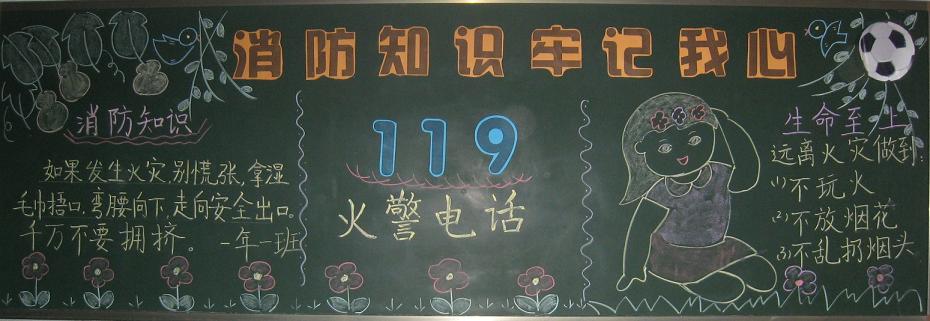 消防知识牢记我心
消防知识
如果发生火灾别慌张,拿湿
毛巾捂口.弯腰向下,走向安全出口。
千万不要拥挤。 一年一班
119
火警电话
生命至上
远离火灾做到:
(1)不玩火
(2)不放烟花
(3)不乱扔烟头